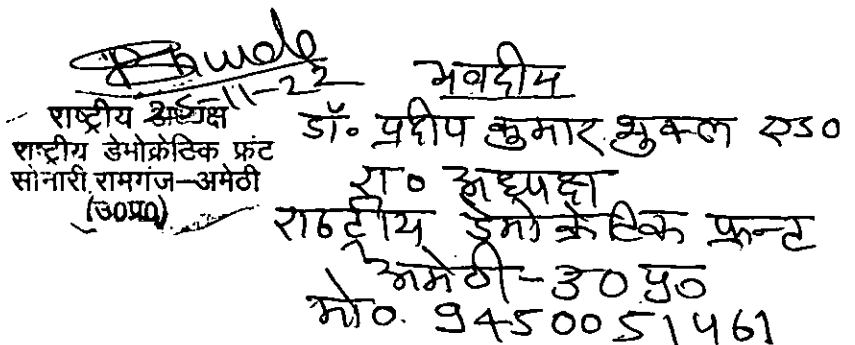 25-11-22
राष्ट्रीय अध्यक्ष
राष्ट्रीय डेमोक्रेटिक फ्रंट
सोनारी रामगंज-अमेठी
(उ०प्र०)
भवदीय
डॉ० प्रदीप कुमार शुक्ल एड०
रा० अध्यक्ष
राष्ट्रीय डेमोक्रेटिक फ्रन्ट
अमेठी-उ०प्र०
मो०. 9450051461